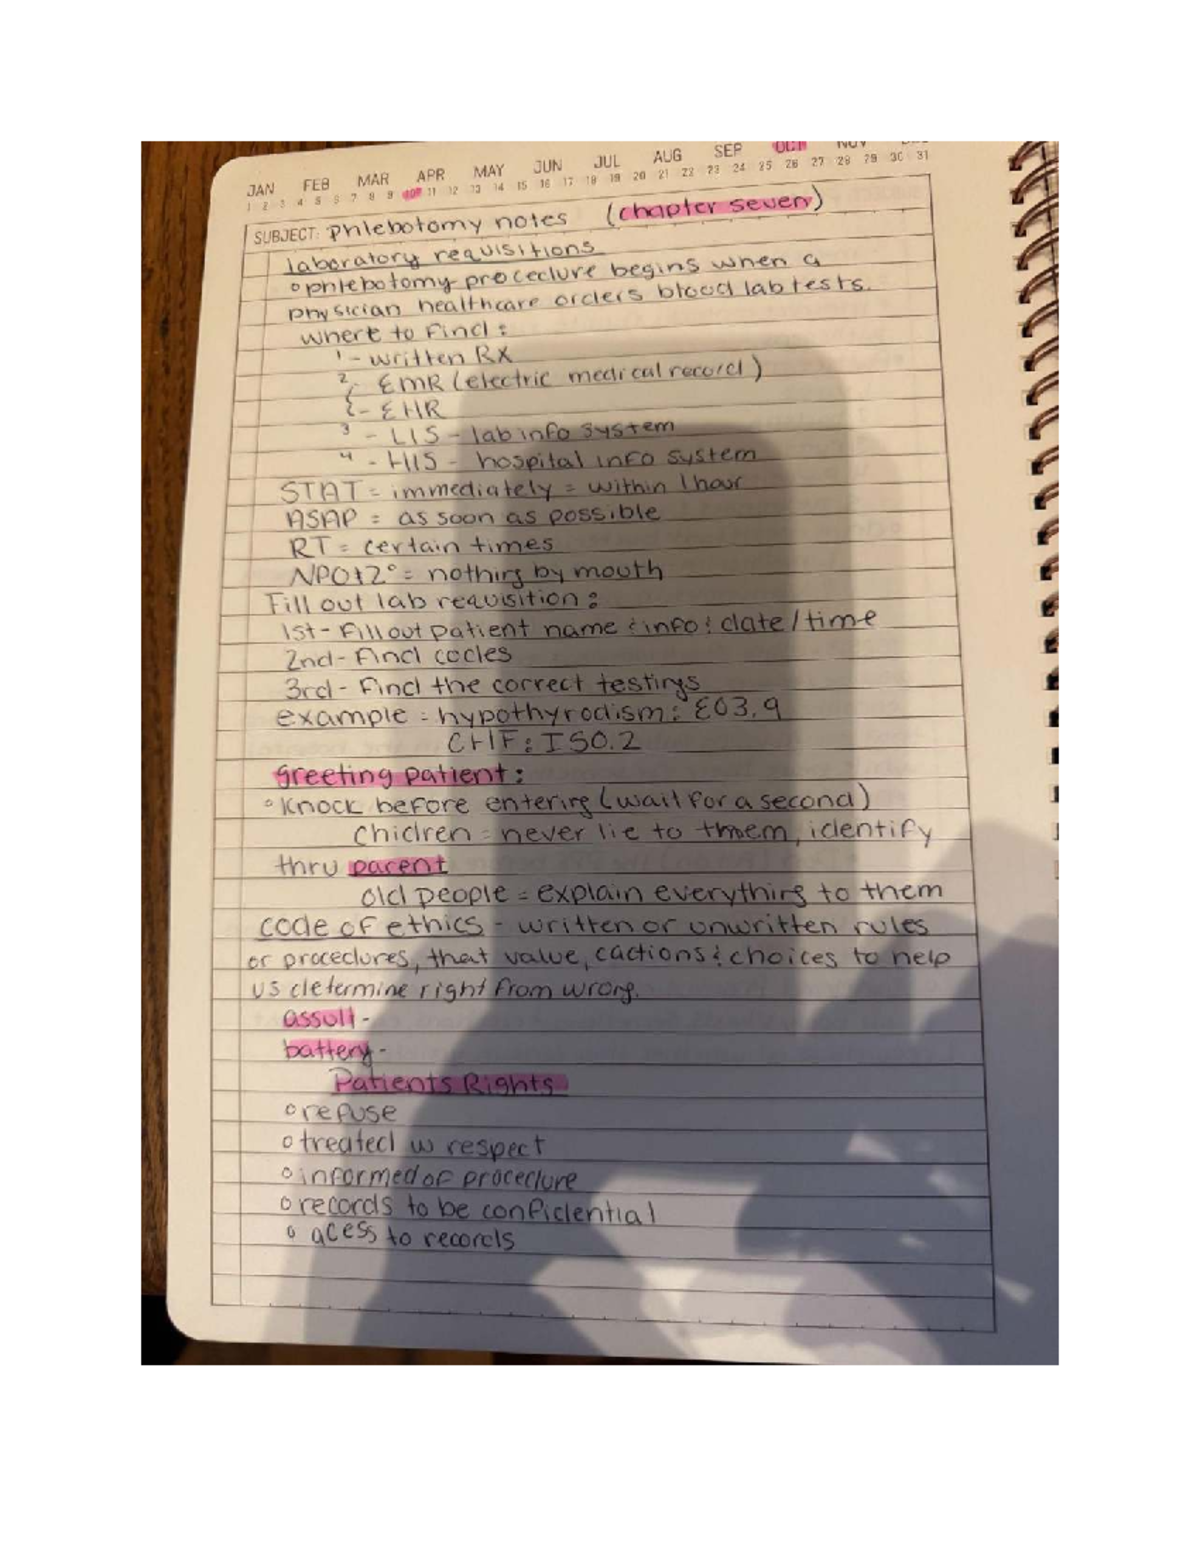 JAN FEB MAR APR MAY JUN JUL AUG SEP OCT NOV
1 2 3 4 5 6 7 8 9 10 11 12 13 14 15 16 17 18 19 20 21 22 23 24 25 26 27 28 29 30 31
SUBJECT: Phlebotomy notes (chapter seven)
laboratory requisitions
o phlebotomy procedure begins when a
physician healthcare orders blood lab tests.
where to find:
1 - written RX
2, EMR (electric medical record)
{ - EHR
3 - LIS - lab info system
4 - HIS - hospital info system
STAT = immediately = within 1 hour
ASAP = as soon as possible
RT = certain times
NPO12° = nothing by mouth
Fill out lab requisition:
1st - Fill out patient name & info & date/time
2nd - Find codes
3rd - Find the correct testings
example = hypothyrodism: E03.9
CHF: I50.2
greeting patient:
° Knock before entering (wait for a second)
Chidren = never lie to them, identify
thru parent
old people = explain everything to them
code of ethics - written or unwritten rules
or procedures, that value, cactions & choices to help
us determine right from wrong.
assult -
battery -
Patients Rights
o refuse
o treated w respect
o informed of procedure
o records to be confidential
o acess to records